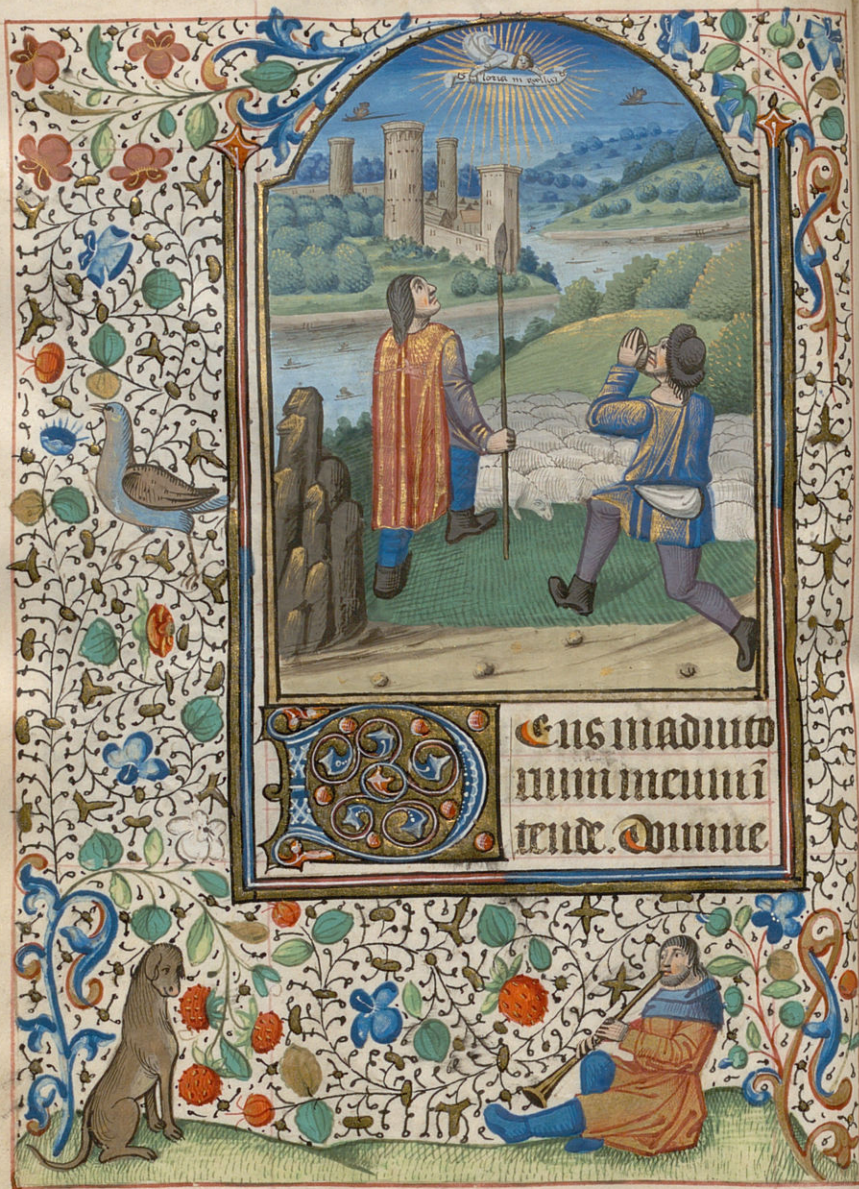 Gloria in excelsis
Deus in adiuto
rium meum in
tende. Domine